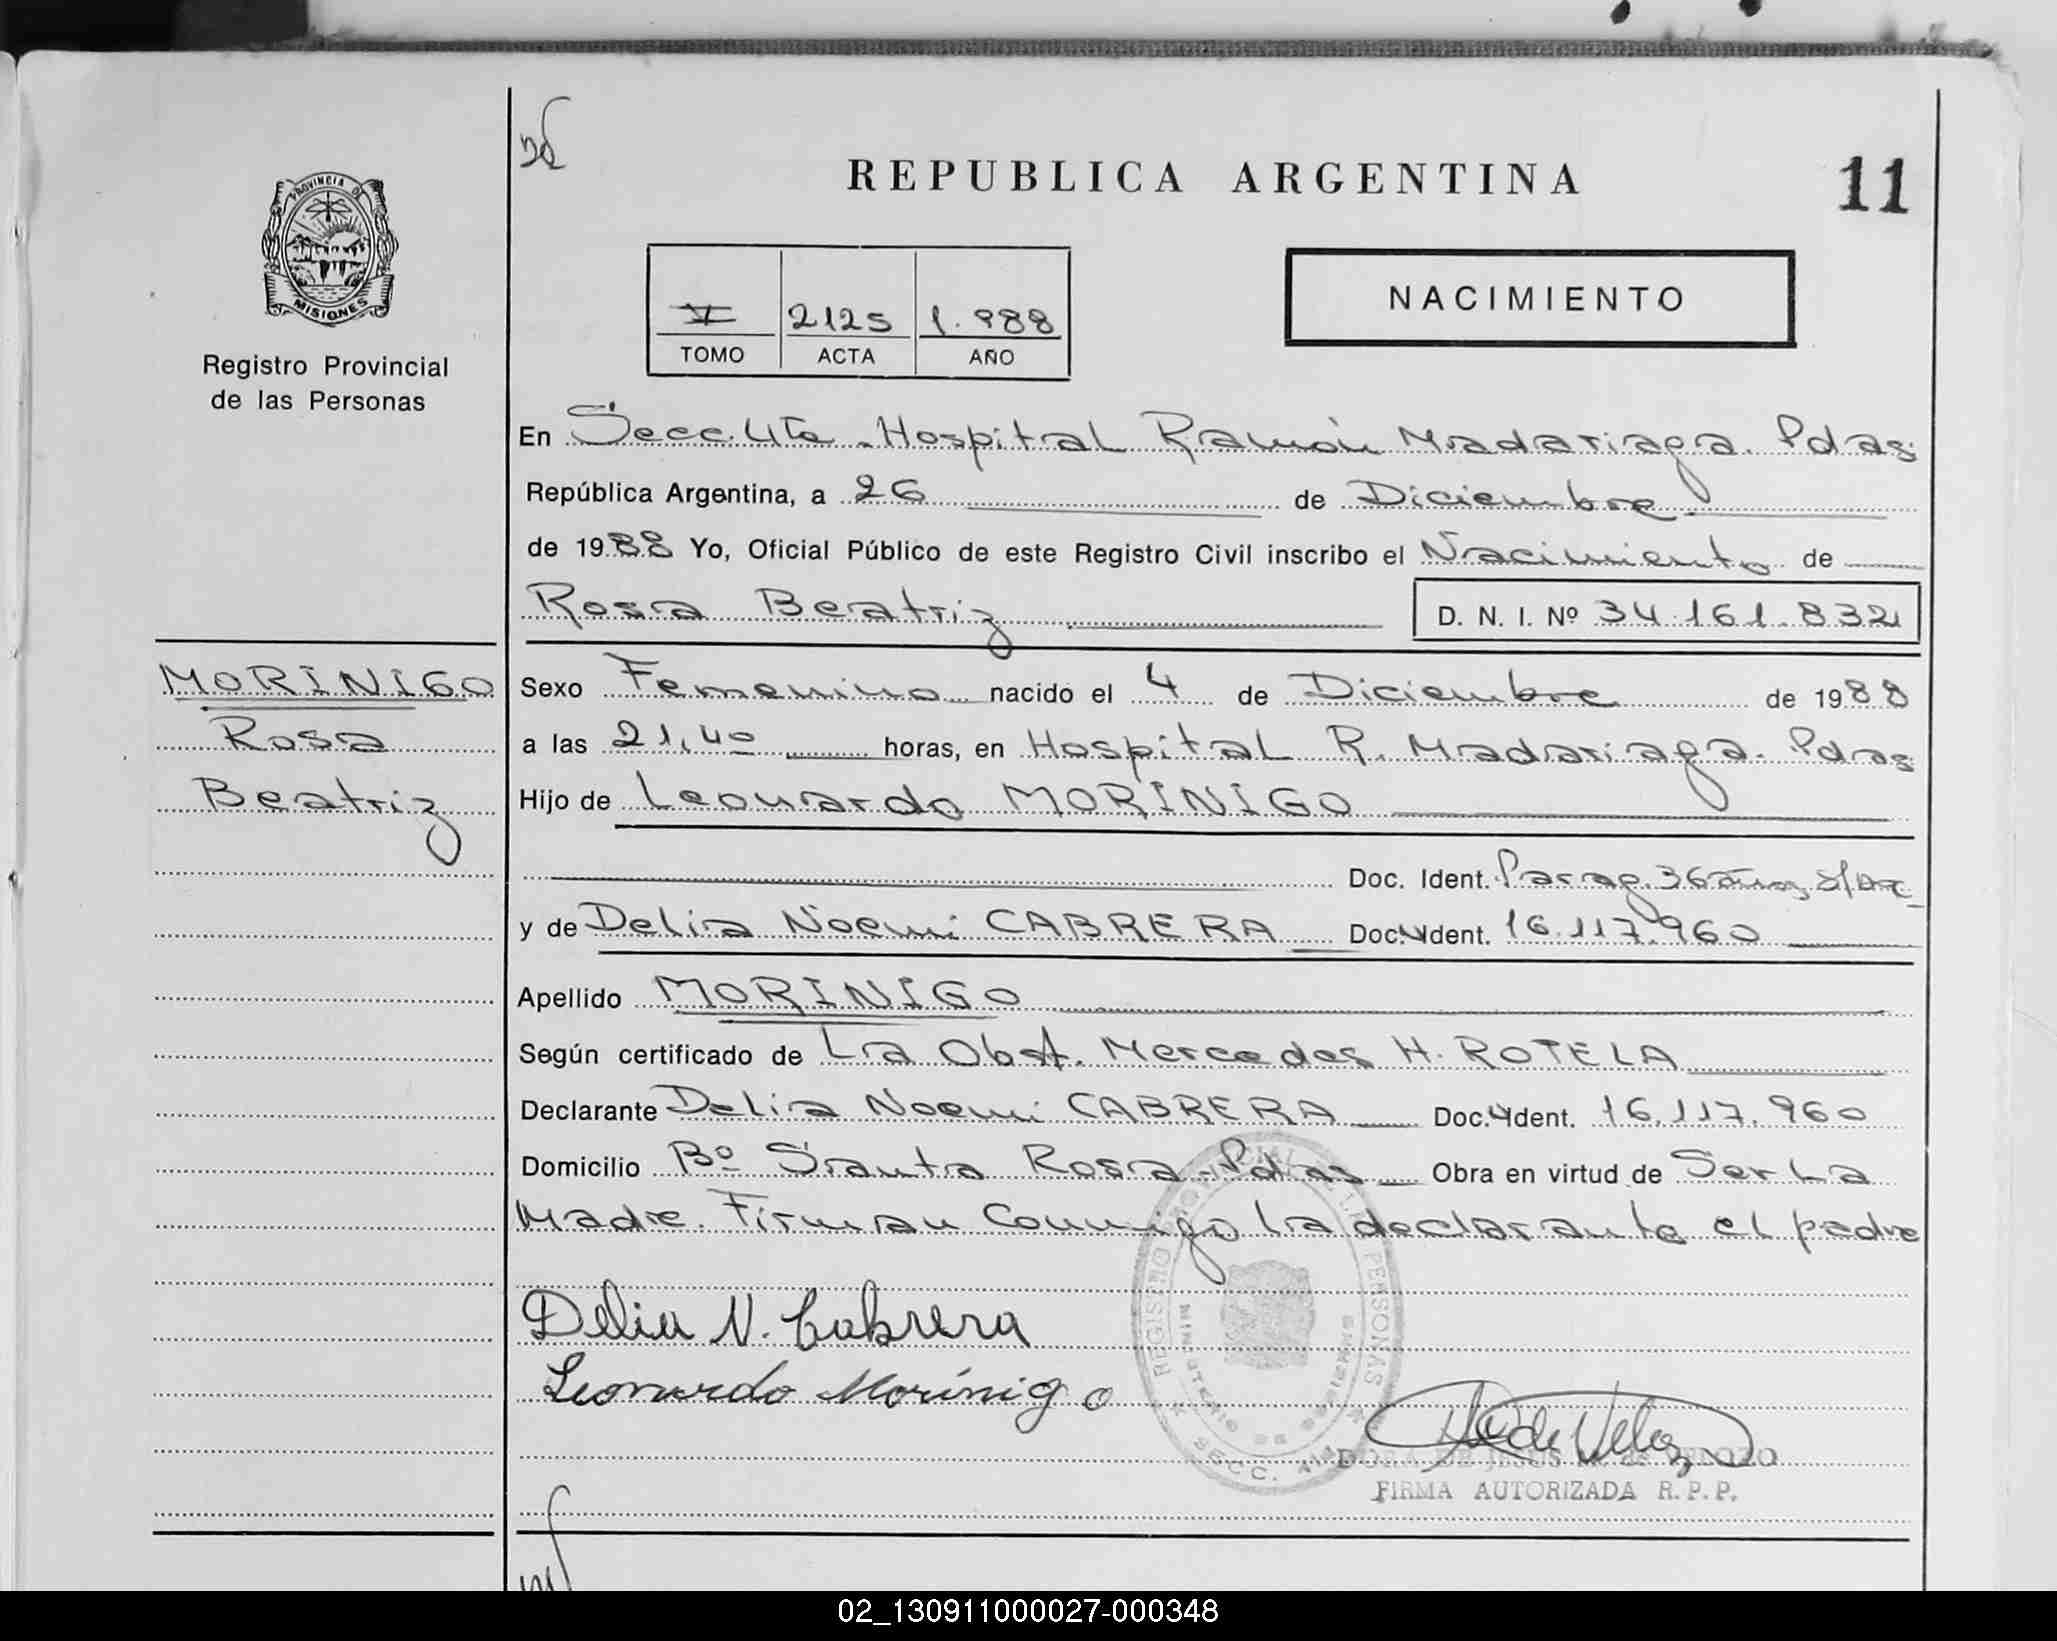 REPUBLICA ARGENTINA
11
PROVINCIA DE
MISIONES
Registro Provincial
de las Personas
V 2125 1.988
TOMO ACTA AÑO
NACIMIENTO
En Secc. 4ta. Hospital Ramón Madariaga. Pdas.
República Argentina, a 26 de Diciembre
de 1988 Yo, Oficial Público de este Registro Civil inscribo el Nacimiento de
Rosa Beatriz D. N. I. Nº 34.161.832
MORINIGO
Rosa
Beatriz
Sexo Femenino nacido el 4 de Diciembre de 1988
a las 21,40 horas, en Hospital R. Madariaga. Pdas
Hijo de Leonardo MORINIGO
Doc. Ident. Parag. 36 años
y de Delia Noemi CABRERA Doc. Ident. 16.117.960
Apellido MORINIGO
Según certificado de La Obst. Mercedes H. ROTELA
Declarante Delia Noemi CABRERA Doc. Ident. 16.117.960
Domicilio Bº Santa Rosa. Pdas Obra en virtud de Ser La
Madre. Firman Conmigo La declarante el padre
Delia N. Cabrera
Leonardo Morínigo
REGISTRO PROVINCIAL DE LAS PERSONAS
MINISTERIO DE GOBIERNO
SECC. 4ta
DORA DE JESUS de VELOZO
FIRMA AUTORIZADA R. P. P.
02_130911000027-000348